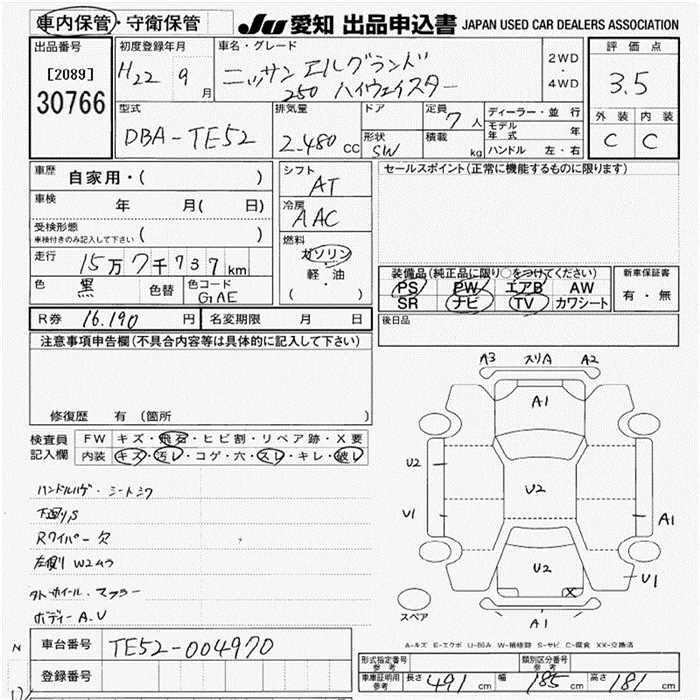 車内保管・守衛保管
JU 愛知 出品申込書 JAPAN USED CAR DEALERS ASSOCIATION
出品番号
[2089]
30766
初度登録年月
H22 9 月
車名・グレード
ニッサン エルグランド
250 ハイウェイスター
2WD
・
4WD
評価点
3.5
外装 内装
C C
型式
DBA-TE52
排気量
2.480 cc
ドア
形状
SW
定員
7 人
積載
kg
ディーラー・並行
モデル年式 年
ハンドル 左・右
車歴
自家用・( )
車検
年 月( 日)
受検形態
車検付きのみ記入して下さい ( )
走行
15万7千737km
色
黒
色替
色コード
GAE
シフト
AT
冷房
AAC
燃料
ガソリン
軽・油
( )
セールスポイント(正常に機能するものに限ります)
装備品(純正品に限り○をつけてください)
PS PW エアB AW
SR ナビ TV カワシート
新車保証書
有・無
R券 16.190 円
名変期限 月 日
後日品
注意事項申告欄(不具合内容等は具体的に記入して下さい)
修復歴 有 (箇所 )
検査員
記入欄
FW キズ・飛石・ヒビ割・リペア跡・X要
内装 キズ・汚レ・コゲ・穴・スレ・キレ・破レ
ハンドルハゲ・シートシワ
下廻りS
Rワイパー欠
左側り W2ムラ
ホイール・マフラー
ボディーA.U
A3 スリA A2
A1
U2
U2
U1
A1
U2
X
U1
A1
スペア
A-キズ E-エクボ U-凹み W-補修跡 S-サビ C-腐食 XX-交換済
N
車台番号
TE52-004970
登録番号
形式指定番号
参考
類別区分番号
参考
車庫証明用
参考
長さ 491 cm
幅 185 cm
高さ 181 cm